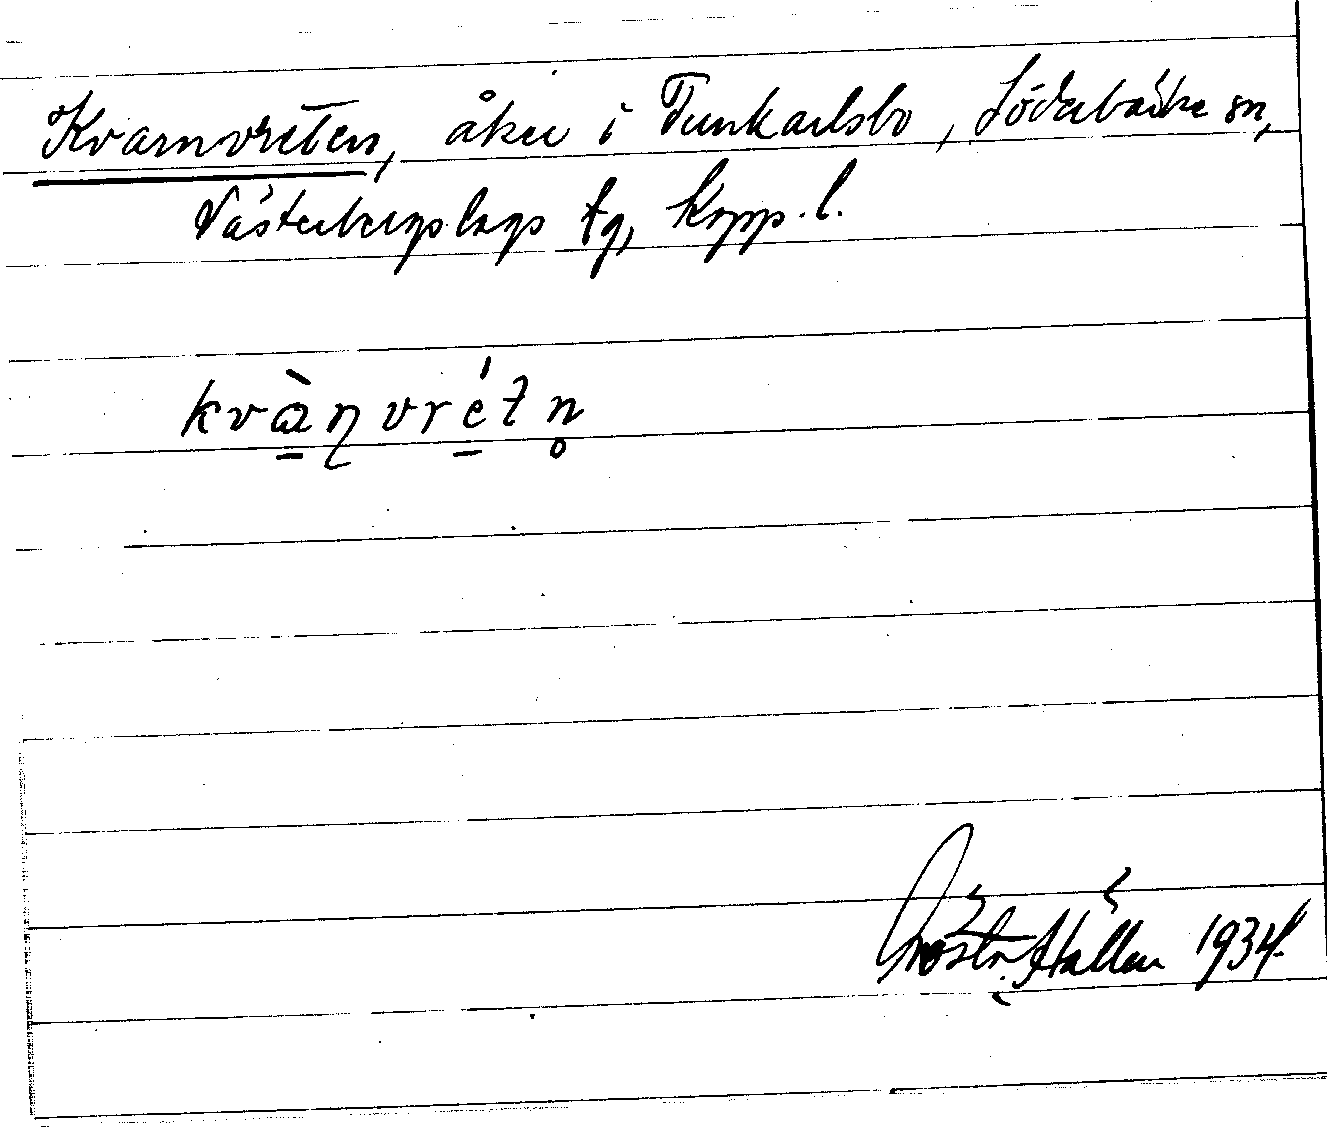 Kvarnvreten, åker i Tunkarlsbo, Söderbärke sn,
Västerbergslags fg, Kopp. l.
kvὰ̠ɳvré̠tn̥
Gösta Hallén 1934.